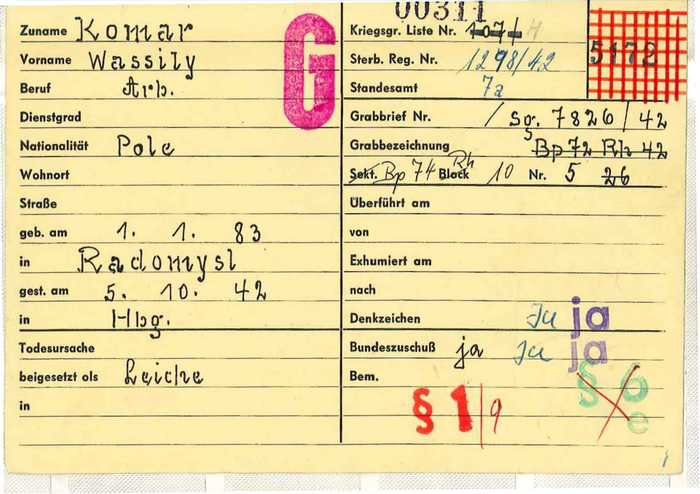 Zuname Komar
Vorname Wassily
Beruf Arb.
Dienstgrad
Nationalität Pole
Wohnort
Straße
geb. am 1. 1. 83
in Radomysl
gest. am 5. 10. 42
in Hbg.
Todesursache
beigesetzt als Leiche
in
G
00311
Kriegsgr. Liste Nr. 1071 4
5172
Sterb. Reg. Nr. 1298/42
Standesamt 7a
Grabbrief Nr. / Sg. 7826/42
Grabbezeichnung Bp 72 Rh 42
Sekt. Bp 74 Block Rh 10 Nr. 5 26
Überführt am
von
Exhumiert am
nach
Denkzeichen Ju ja
Bundeszuschuß ja Ju ja
Bem. § 6
e
§ 1/9